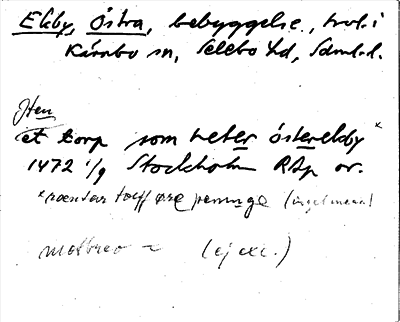 Ekby, Östra, bebyggelse, trol. i
Kärnbo sn, Selebo hd, Sdml.d.
Item
et torp som heter österekby x
1472 1/9 Stockholm RAp or.
x rentar tolff øre peninge (inget mera!
(ej exc.)